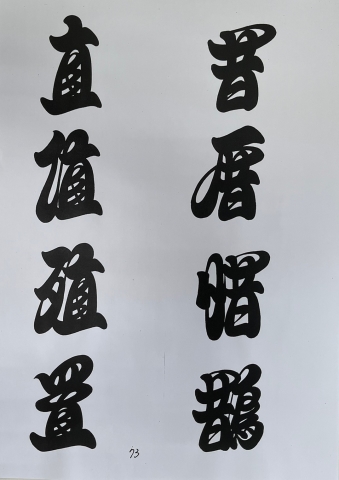 昔
厝
惜
鵲
直
殖
置
73